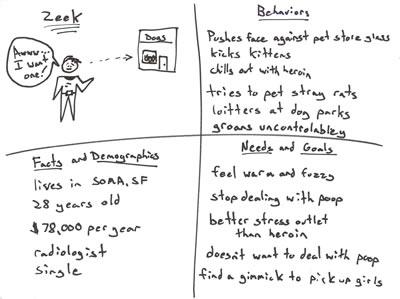 Zeek
Awww...
I want
one!
Dogs
Behaviors
Pushes face against pet store glass
kicks kittens
chills out with heroin
tries to pet stray rats
loitters at dog parks
groans uncontrolably
Facts and Demographics
lives in SOMA, SF
28 years old
$78,000 per year
radiologist
single
Needs and Goals
feel warm and fuzzy
stop dealing with poop
better stress outlet
than heroin
doesn't want to deal with poop
find a gimmick to pick up girls